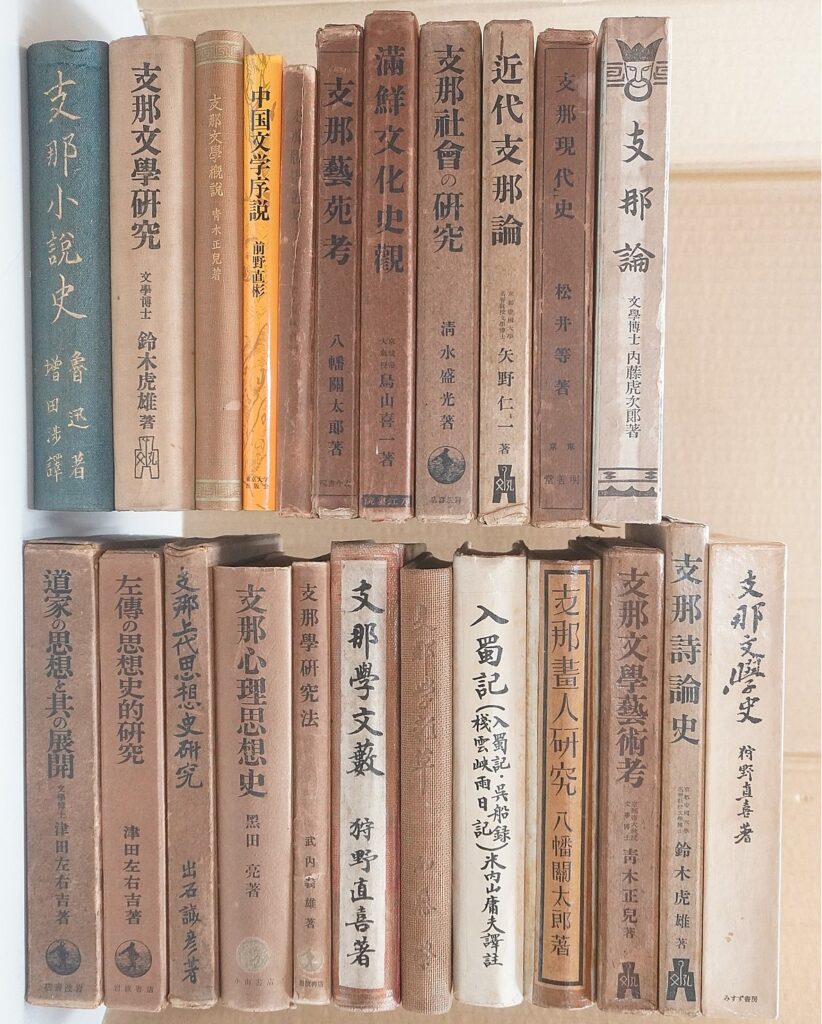 支那小説史
魯迅著
増田渉譯
支那文學研究
文學博士 鈴木虎雄著
支那文學概説 青木正兒著
中国文学序説 前野直彬
東京大学出版会
支那藝苑考 八幡關太郎著
滿鮮文化史觀
鳥山喜一著
刀江書院
支那社會の研究 清水盛光著
岩波書店
近代支那論
矢野仁一著
支那現代史 松井等著
東京 明善堂
支那論
文學博士 内藤虎次郎著
道家の思想と其の展開
文學博士 津田左右吉著
岩波書店
左傳の思想史的研究
津田左右吉著
岩波書店
支那上代思想史研究 出石誠彦著
支那心理思想史 黑田亮著
小山書店
支那學研究法 武内義雄著
岩波書店
支那學文藪 狩野直喜著
入蜀記(入蜀記・呉船録
棧雲峽雨日記)米内山庸夫譯註
支那畫人研究 八幡關太郎著
支那文學藝術考
青木正兒著
支那詩論史
鈴木虎雄著
支那文學史 狩野直喜著
みすず書房